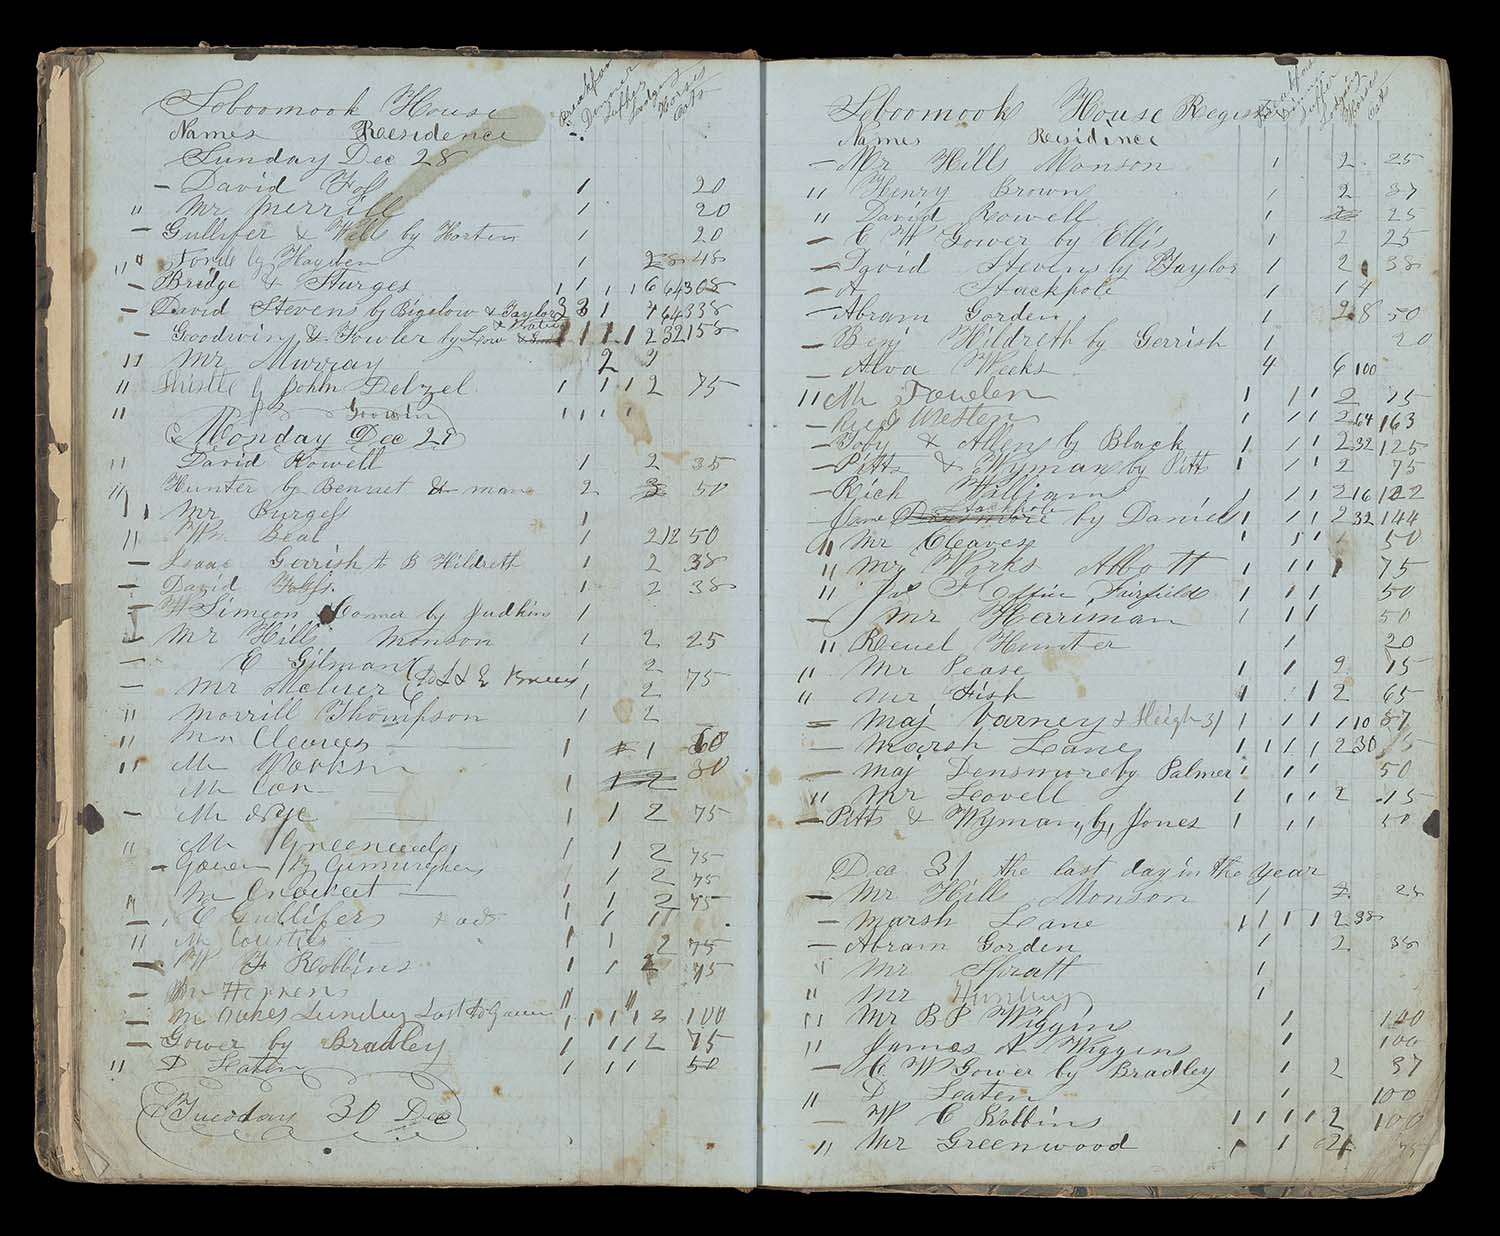 Seboomook House
Names Residence
Breakfast
Dinner
Supper
Lodging
Horses
Oats
Sunday Dec 28
— David 1 20
" Mr Merrill 1 20
— Gullifer & Wells by Horten 1 20
by Hayden 1 2 8 48
— Bridge & Sturges 1 1 1 1 6 64 308
— David Stevens by Bigelow & Taylor 3 3 1 4 64 338
— Goodwin & Fowler by Low & 1 1 1 1 2 32 158
" Mr Murray 2 2
" by John Delzel 1 1 1 2 75
" 1 1 1 1
Monday Dec 29
" David Rowell 1 2 35
" Hunter by Bennet & man 2 3 50
" Mr Burgess 1
" Wm Beal 1 2 12 50
— Isaac Gerrish to B Hildreth 1 2 38
— David 1 2 38
— Simeon by Judkins 1
Mr Hills Monson 1 2 25
— E Gilman 1 2
— Mr McLuer 1 2 75
" Morrill Thompson 1 2
" Mr 1 1 1 60
" Mr 30
Mr 1 1 2
— Mr 1 1 2 75
" Mr Greenwood 1 1 2 75
— Gower by Cunningham 1 2 75
" Mr Crockett 1 1 2 75
— C Gullifers 1 1 11
" Mr 1 1 2 75
— W F Robbins 1 1 2 75
— Mr
— Mr Sunday Last to Gower 1 1 1 1 2 100
— Gower by Bradley 1 1 1 2 75
" D 1 1 1 50
Tuesday 30 Dec
Seboomook House Register
Names Residence
Breakfast
Dinner
Supper
Lodging
Horses
Oats
— Mr Hills Monson 1 2 25
" Henry Brown 1 2 37
" David Rowell 1 2 25
— C W Gower by Ellis 1 2 25
— David Stevens by Taylor 1 2 38
— A Stackpole 1 1 4
— Abram Gorden 1 2 8 50
— Benj Hildreth by Gerrish 1 20
— Alva Weeks 4 6 100
" Mr 1 1 1 2 75
— Westen 1 1 1 2 64 163
— & Allen by Black 1 1 1 2 32 125
— Pitts & Wyman by Pitts 1 1 1 2 75
— Rich William 1 1 1 2 16 122
Stackpole
— Densmore by Daniel 1 1 1 2 32 144
" Mr Cleaves 1 1 1 1 50
" Mr Works Abbott 1 1 1 1 75
" Fairfield 1 1 1 50
— Mr Herriman 1 1 1 50
" Reuel Hunter 1 20
" Mr Pease 1 1 1 2 75
" Mr Fish 1 1 2 65
= Maj Varney & Sleigh 31 1 1 1 1 10 87
— Marsh Lane 1 1 1 1 2 30
— Maj Densmore by Palmer 1 1 1 50
" Mr Leovell 1 1 1 2 75
— Pitts & Wyman, by, Jones 1 1 1 50
Dec 31 the last day in the year
— Mr Hill Monson 1 2 25
— Marsh Lane 1 1 1 1 2 38
— Abram Gorden 1 2 38
" Mr Spratt 1
" Mr 1
" Mr B P Wiggins 1 100
" James A Wiggins 1 100
— C W Gower by Bradley 1 2 37
" D 1 100
— W C Robbins 1 1 1 1 2 100
" Mr Greenwood 1 1 2 75